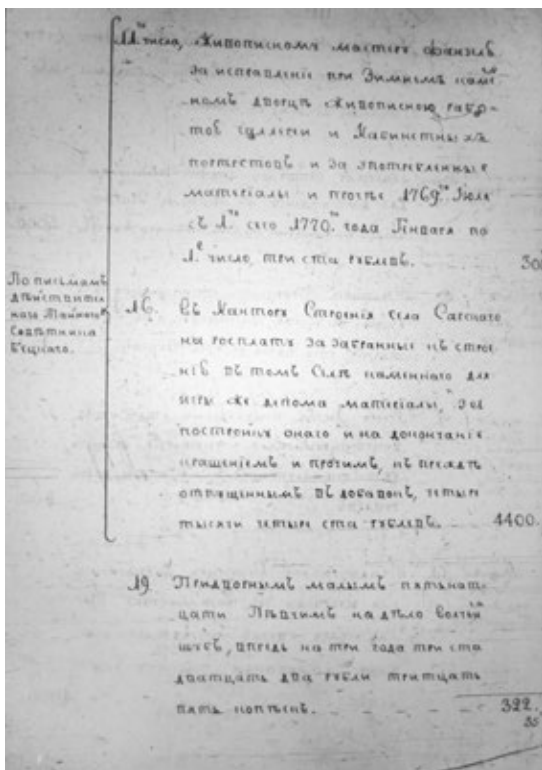 11го числа, Живописному мастеру Фанзельт
за исправленіе при Зимнемъ камен
номъ дворцѣ живописною рабо-
тою галлереи и Кабинетныхъ
портретовъ и за употребленные
матеріалы и протчее 1769го Іюля
съ 1го сего 1770го года Генваря по
1е число, три ста рублевъ. 30
По письмамъ
дѣйствител
наго Тайнаго
Совѣтника
Бецкаго.
16. Въ Кантору Строенія села Сарскаго
на росплату за забранные къ строе
нію въ томъ Селѣ каменнаго для
игры же дома матеріалы, за
построику онаго и на докончаніе
крашеніемъ и протчимъ, къ прежде
отпущеннымъ въ добавокъ, четыре
тысячи четыре ста рублевъ. 4400.
19. Придворнымъ малымъ пятьнат-
цати Пѣвчимъ на дѣло
шубъ, впредь на три года три ста
дватцать два рубли тритцать
пять копѣекъ. - - - - 322.
35